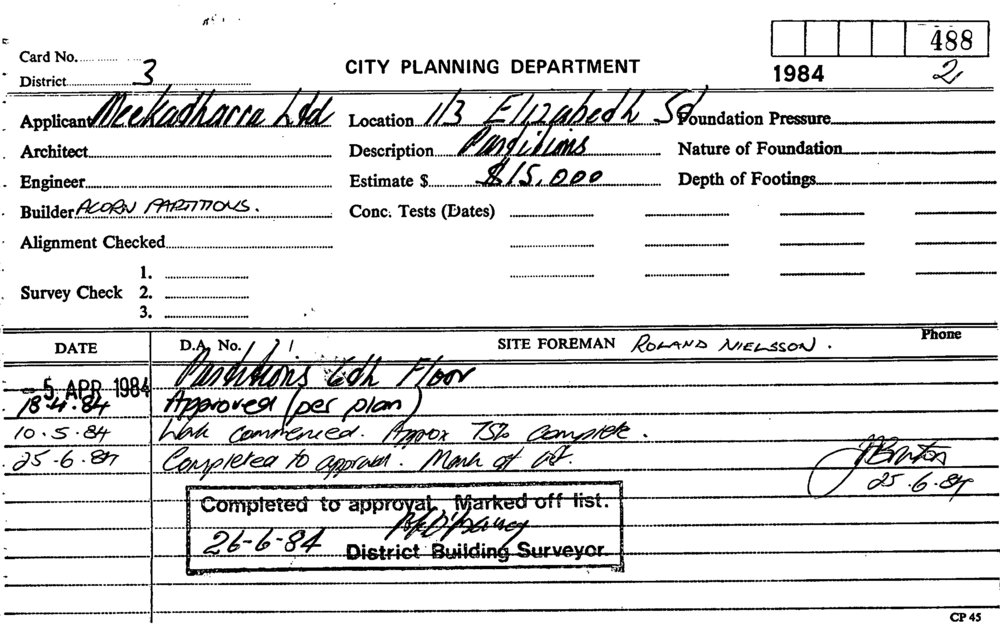 Card No.
488
District 3
CITY PLANNING DEPARTMENT
1984 2
Applicant Meekadharra Ltd
Location 1/3 Elizabeth St
Foundation Pressure
Architect
Description Partitions
Nature of Foundation
Engineer
Estimate $ $15,000
Depth of Footings
Builder ACORN PARTITIONS.
Conc. Tests (Dates)
Alignment Checked
Survey Check
1.
2.
3.
DATE
D.A. No.
SITE FOREMAN ROLAND NIELSSON.
Phone
- 5 APR 1984 Partitions 6th Floor
18.4.84 Approved (per plan)
10.5.84 Work commenced. Approx 75% complete.
25-6.84 Completed to approval. Mark off list.
25.6.84
Completed to approval, Marked off list.
26-6-84 District Building Surveyor.
CP 45